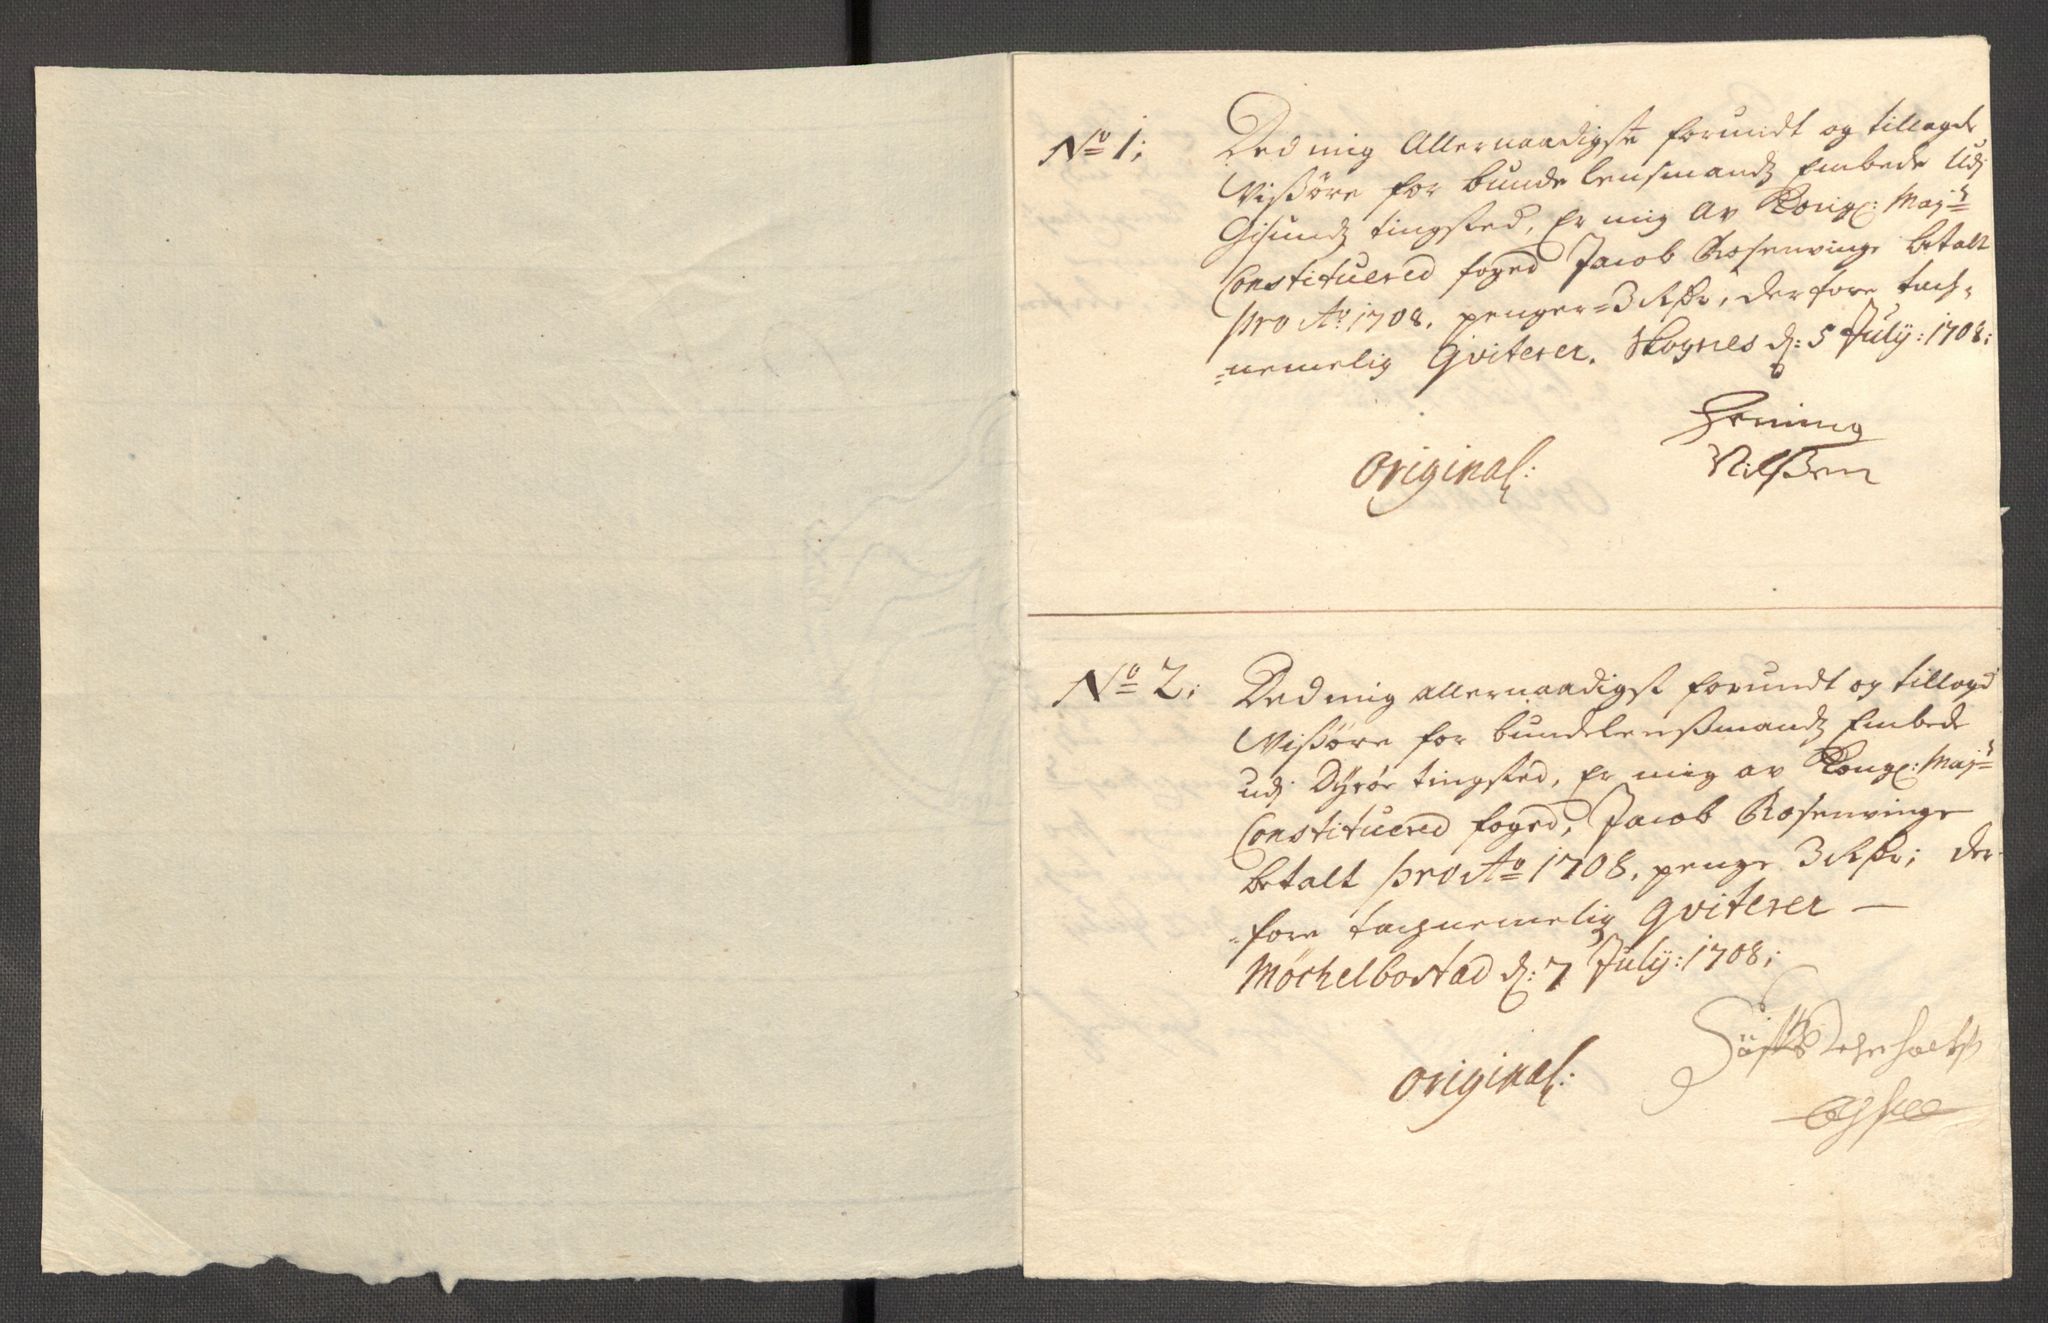 No 1;
Ded mig Allernaadigste forundt og tillagde
Visøre for bunde lensmandz Embede Udj
Gisundz tingsted, Er mig Av Kongl: Majts
Constituered foged Jacob Rosenvinge betalt
pro Ao 1708. penger = 3 Rdr, derfore tach-
=nemelig Qviterer. Skognes d: 5 July: 1708:
Hening
Nilsen
Original:
No 2:
Ded mig allernaadigst forundt og tillagd
Visøre for bundelensmandz Embede
udj Dyrør tingsted, Er mig av Kongl: Majts
Constituered foged, Jacob Rosenvinge
betalt pro Ao 1708, penge 3 Rdr; der
=fore tachnemelig Qviterer —
Mochelbostad d: 7 July: 1708;
Original: